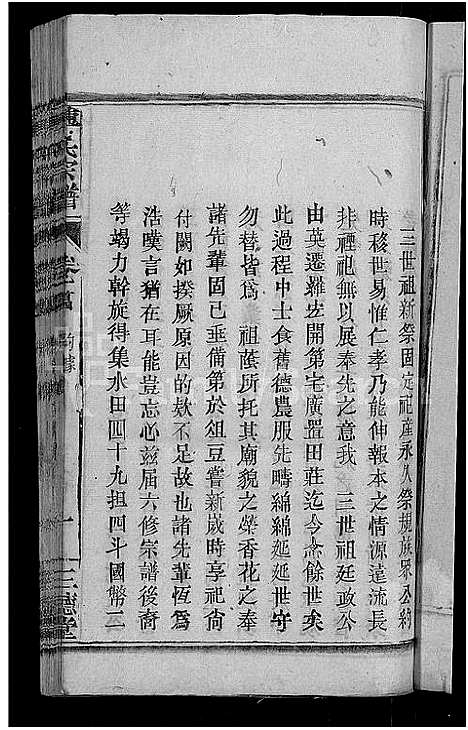 三世祖新祭固定祀產永久祭規族眾公約
時移世易惟仁孝乃能伸報本之情源遠流長
非禋祀無以展奉先之意我 三世祖廷政公
由英遷羅安開第宅廣置田莊迄今 餘世矣
此過程中士食舊德農服先疇綿綿延延世守
勿替皆爲 祖蔭所托其廟貌之榮香花之奉
諸先輩固已垂備第於俎豆嘗新歲時享祀尙
付闕如揆厥原因的欵不足故也諸先輩恆爲
浩嘆言猶在耳能豈忘心茲届六修宗譜後裔
等竭力幹旋得集水田四十九担四斗國幣二
氏宗譜
卷首
一
三德堂